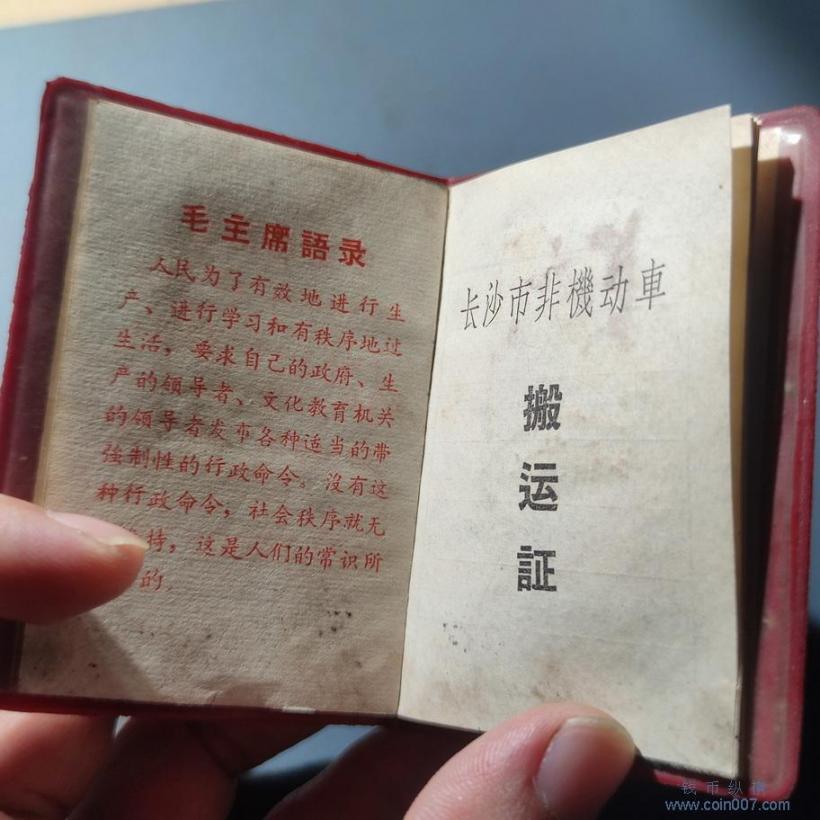 毛主席語录
人民为了有效地进行生
产、进行学习和有秩序地过
生活，要求自己的政府、生
产的领导者、文化教育机关
的领导者发布各种适当的带
强制性的行政命令。沒有这
种行政命令，社会秩序就无
持，这是人们的常识所
的。
长沙市非機动車
搬
运
証
钱币纵横
www.coin007.com